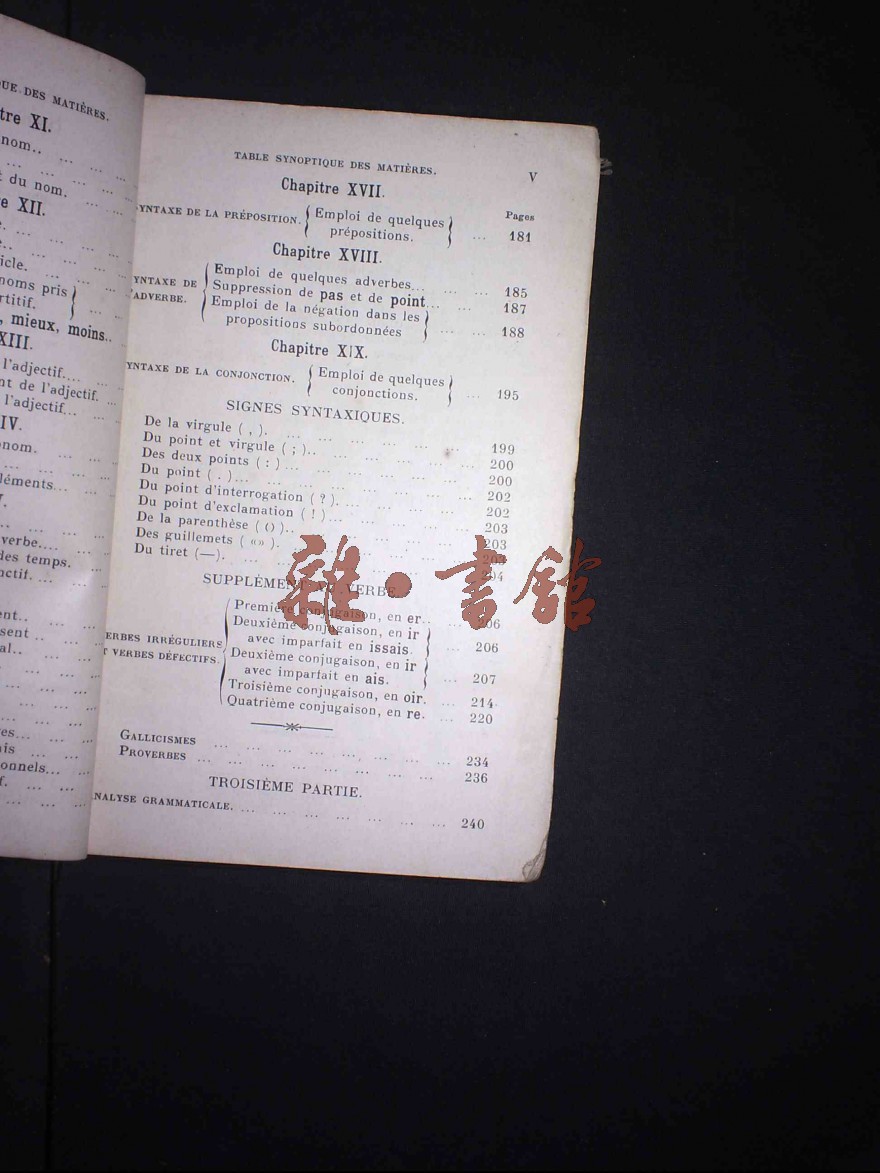 QUE DES MATIÈRES.
tre XI.
nom.. ... ...
... ... ...
t du nom. ... ...
e XII.
e. ... ... ...
e.. ... ... ...
icle. ... ...
noms pris }
rtitif. }
, mieux, moins..
XIII.
l'adjectif.... ...
nt de l'adjectif. ...
l'adjectif... ...
IV.
onom. ... ...
... ... ...
léments... ... ...
.. ...
verbe.... ... ...
des temps. ...
nctif. ... ...
ent.. ... ...
sent .. ... ...
al.. ... ...
es... ... ...
ais ... ...
onnels... ...
f. ... ... ...
TABLE SYNOPTIQUE DES MATIÈRES. V
Chapitre XVII.
Pages
YNTAXE DE LA PRÉPOSITION. { Emploi de quelques }
prépositions. } ... 181
Chapitre XVIII.
YNTAXE DE { Emploi de quelques adverbes... ... ... 185
'ADVERBE. Suppression de pas et de point... ... 187
Emploi de la négation dans les }
propositions subordonnées } ... 188
Chapitre XIX.
YNTAXE DE LA CONJONCTION. { Emploi de quelques }
conjonctions. } ... 195
SIGNES SYNTAXIQUES.
De la virgule ( , ). ... ... ... ... ... ... 199
Du point et virgule ( ; ).. ... ... ... ... ... 200
Des deux points ( : ) ... ... ... ... ... ... 200
Du point ( . )... ... ... ... ... ... ... 202
Du point d'interrogation ( ? ). ... ... ... ... 202
Du point d'exclamation ( ! ) ... ... ... ... ... 203
De la parenthèse ( () ).. ... ... ... ... ... 203
Des guillemets ( «» ). ... ... ... ... ... 203
Du tiret (—). ... ... ... ... ... ... 204
SUPPLÉMENT AU VERBE.
Première conjugaison, en er.. ... 206
Deuxième conjugaison, en ir }
avec imparfait en issais. } ... 206
ERBES IRRÉGULIERS
T VERBES DÉFECTIFS. { Deuxième conjugaison, en ir }
avec imparfait en ais. } ... 207
Troisième conjugaison, en oir. ... 214
Quatrième conjugaison, en re. ... 220
GALLICISMES ... ... ... ... ... ... ... 234
PROVERBES ... ... ... ... ... ... ... 236
TROISIÈME PARTIE.
NALYSE GRAMMATICALE. ... ... ... ... ... ... ... 240
雜·書館